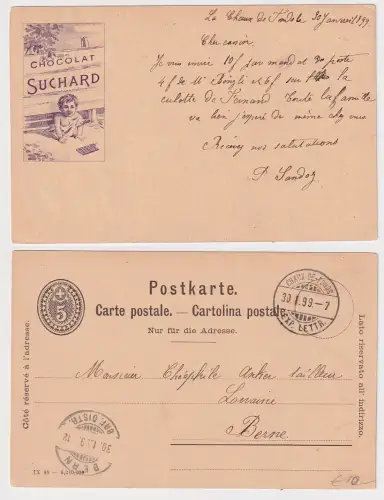 La Chaux de Fonds le 30 Janvier 1899
CHOCOLAT
SUCHARD
Cher cousin
Je vous envoie 10f par mandat de poste
4f de Mr et 6f sur la
culotte de Fernand Toute la famille
va bien j'espère de meme chez vous
Recevez nos salutations
P Sandoz
Postkarte.
Carte postale. — Cartolina postale.
Nur für die Adresse.
5
CHAUX-DE-FONDS
30.I.99.-7
EXP. LETTR.
Côté réservé à l'adresse.
Lato riservato all' indirizzo.
Monsieur Théophile Anker tailleur
Lorraine
Berne
BERN
BRF. DISTR.
€10